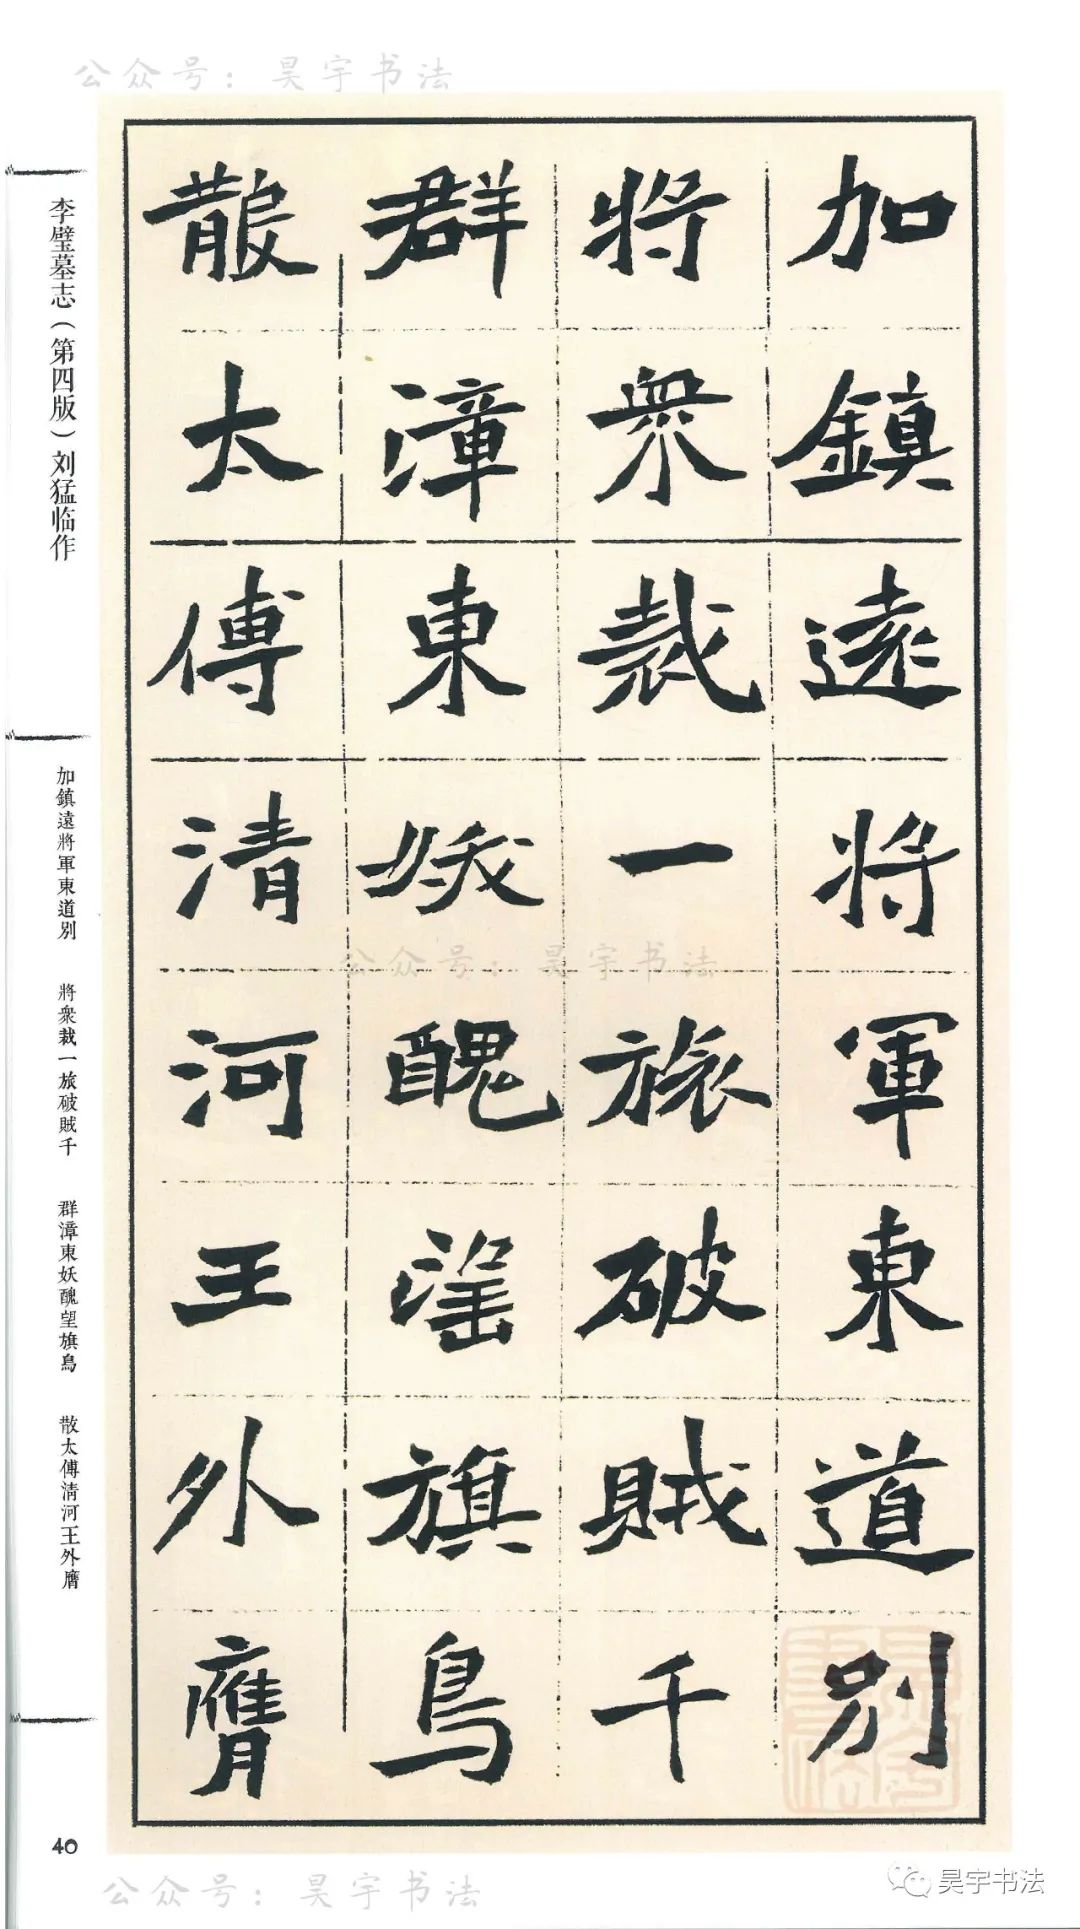 公众号：昊宇书法
加鎮遠將軍東道別
將衆裁一旅破賊千
群漳東妖醜望旗鳥
散太傅清河王外膺
李璧墓志（第四版）刘猛临作
加鎮遠將軍東道別 將衆裁一旅破賊千 群漳東妖醜望旗鳥 散太傅清河王外膺
公众号：昊宇书法
40
公众号：昊宇书法
昊宇书法